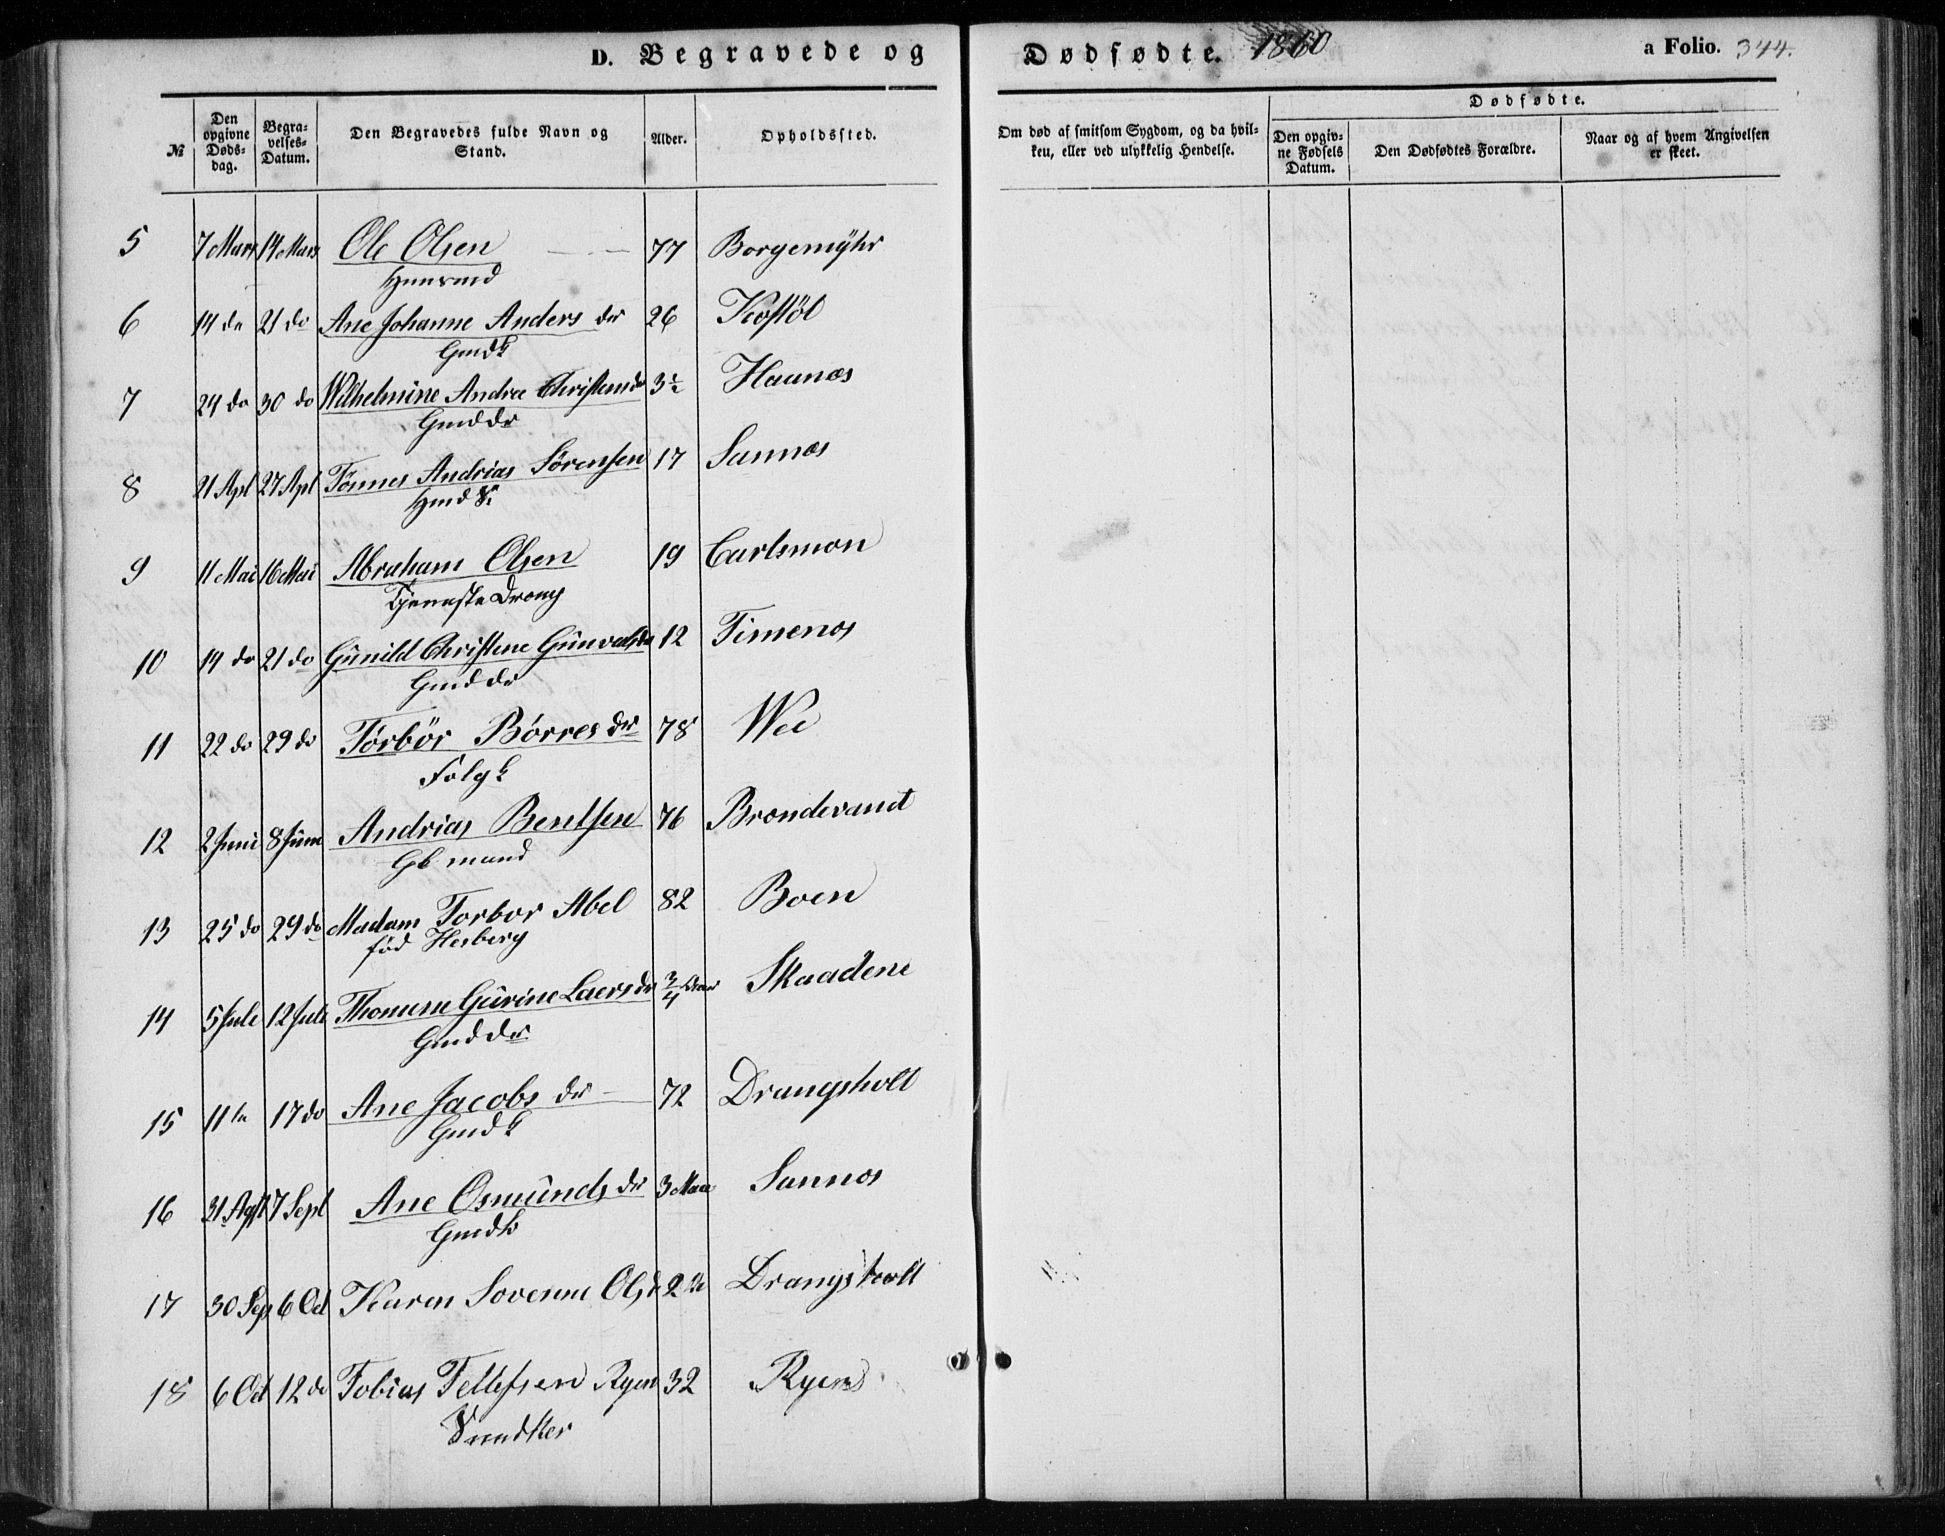 D. Begravede og Dødfødte. 1860 a Folio. 344.
№ Den opgivne Døds-dag. Begra-velses-Datum. Den Begravedes fulde Navn og Stand. Alder. Opholdssted. Om død af smitsom Sygdom, og da hvil-ken, eller ved ulykkelig Hendelse. Dødfødte. Den opgiv-ne Fødsels Datum. Den Dødfødtes Forældre. Naar og af hvem Angivelsen er skeet.
5 7 Mars 14 Mars Ole Olsen 77 Borgemyhr
Huusmd
6 14 do 21 do Ane Johanne Anders dr 26 Kostøl
Gmdk
7 24 do 30 do Wilhelmine Andrea Christensdr 3½ Haanæs
Gmd dr
8 21 Apl 27 Apl Tønnes Andrias Sørensen 17 Sannæs
Hmd S
9 11 Mai 16 Mai Abraham Olsen 19 Carlsmon
Tjeneste Dreng
10 14 do 21 do Gunild Christene Gunvalsdr 12 Timenes
Gmd dr
11 22 do 29 do Torbör Børres dr 78 Wee
Folgk
12 2 Juni 8 Juni Andrias Bentsen 76 Brondevand
Gb mand
13 25 do 29 do Madam Torbor Abel 82 Boen
föd Hesberg
14 5 Juli 12 Juli Thomine Gurine Laers dr 3/4 Skaadene
Gmd dr
15 11 do 17 do Ane Jacobs dr 72 Drangsholt
Gmdk
16 31 Agst 7 Sept Ane Osmunds dr 3 Sannes
Gmdk
17 30 Sep 6 Oct Karen Sovenne Ols d 2 Drangsholt
18 6 Oct 12 do Tobias Tellefsen Ryen 32 Ryen
Snedker